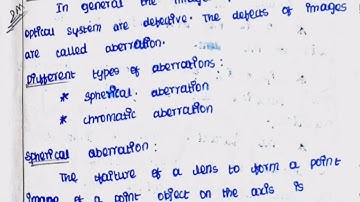 2m
In general the images
optical system are defective. The defects of images
are called aberration.
Different types of aberrations:
* spherical. aberration
* chromatic aberration
Spherical aberration:
The failure of a lens to form a point
image of a point object on the axis is